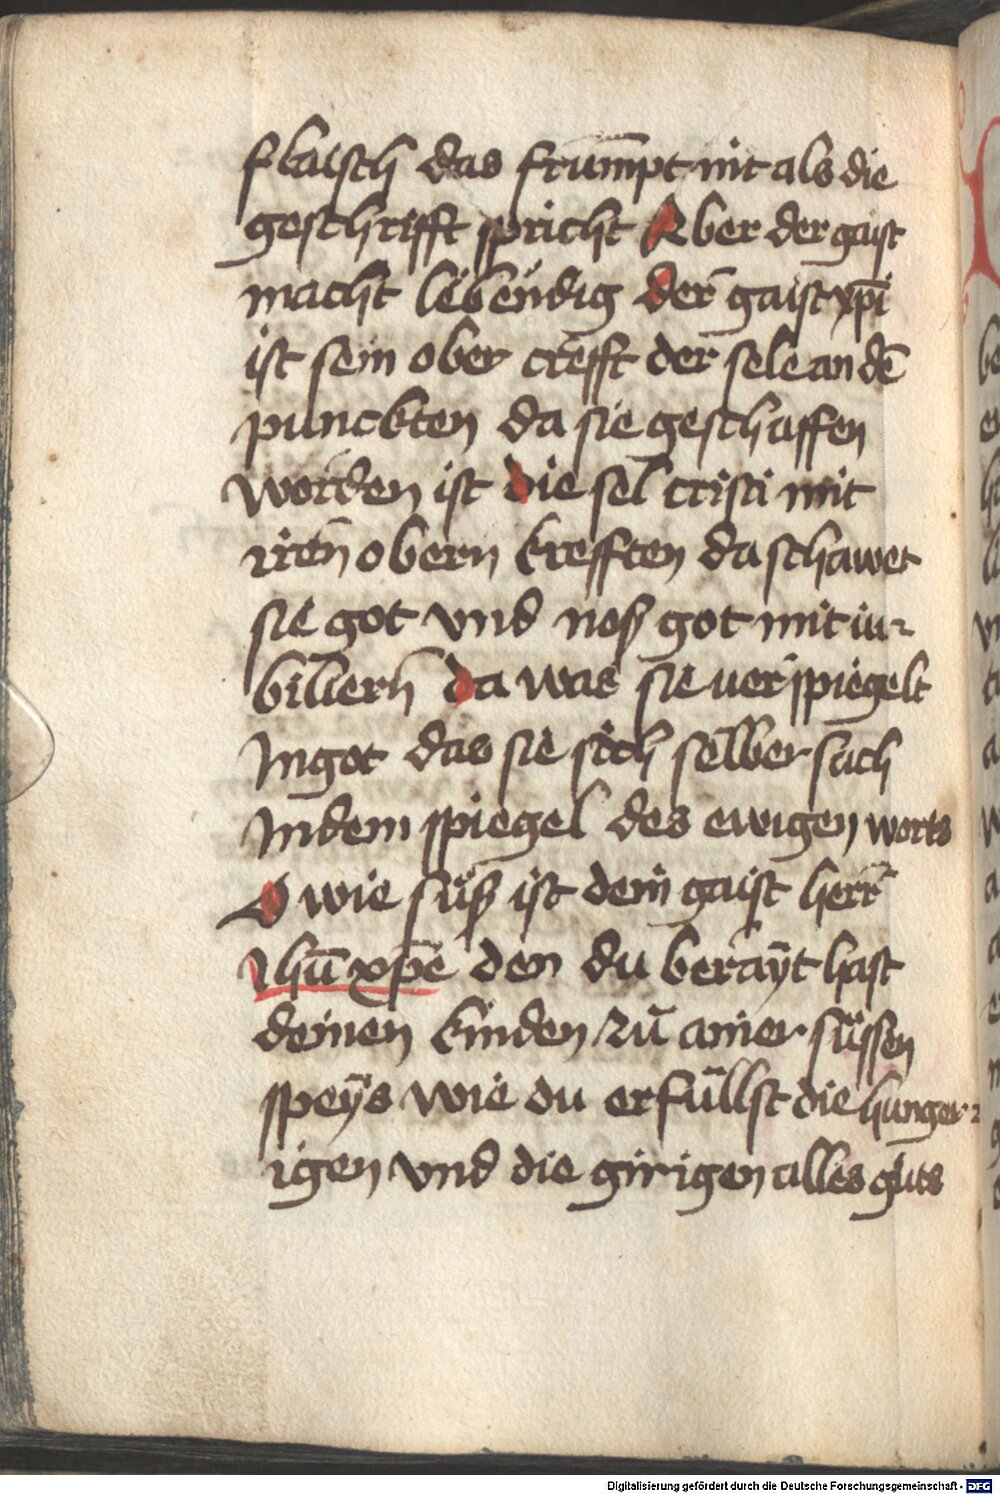 flaisch das frūmpt nit als die
geschrifft spricht Aber der gaist
macht lebendig der gaist xp̄i
ist sein ober crefft der sele an dē
punckten da sie geschaffen
worden ist die sel cristi mit
iren obern krefften da schawet
sie got vnd nosß got mit iu-
biliern da was sie uerspiegelt
In got das sie sich selber sach
In dem spiegel des ewigen worts
O wie süsß ist dein gaist herr
Ihū xp̄e den du berayt hast
deinen kinden zu ainer süssen
speÿs wie du erfüllst die hunger-
igen vnd die girigen alles güts
Digitalisierung gefördert durch die Deutsche Forschungsgemeinschaft - DFG